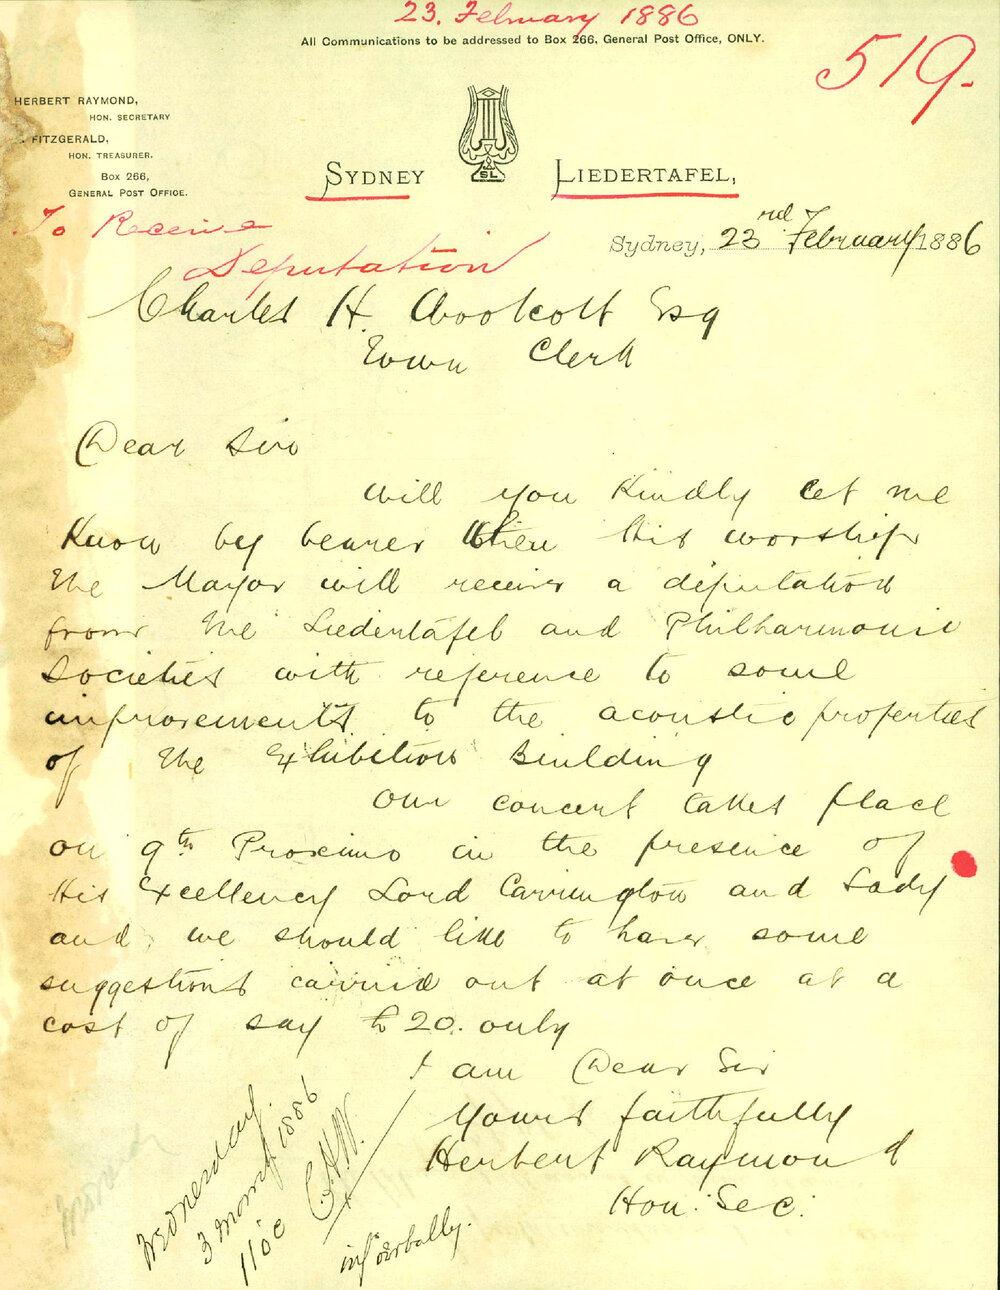 23. February 1886
All Communications to be addressed to Box 266, General Post Office, ONLY.
519.
HERBERT RAYMOND,
HON. SECRETARY
FITZGERALD,
HON. TREASURER.
Box 266,
GENERAL POST OFFICE.
SL
SYDNEY LIEDERTAFEL,
To Receive
Deputation
Sydney, 23rd February 1886
Charles H. Woolcott Esq
Town Clerk
Dear Sir
Will you Kindly let me
Know by bearer When His worship
the Mayor will receive a deputation
from the Liedertafel and Philharmonic
Societies with reference to some
improvements to the acoustic properties
of the Exhibition Building
Our concert takes place
on 9th Proximo in the presence of
His Excellency Lord Carrington and Lady
and we should like to have some
suggestions carried out at once at a
cost of say £20. only
I am Dear Sir
Yours faithfully
Herbert Raymond
Hon: Sec:
Wednesday
3 1886
11 oC
C.H.W.
infd verbally.